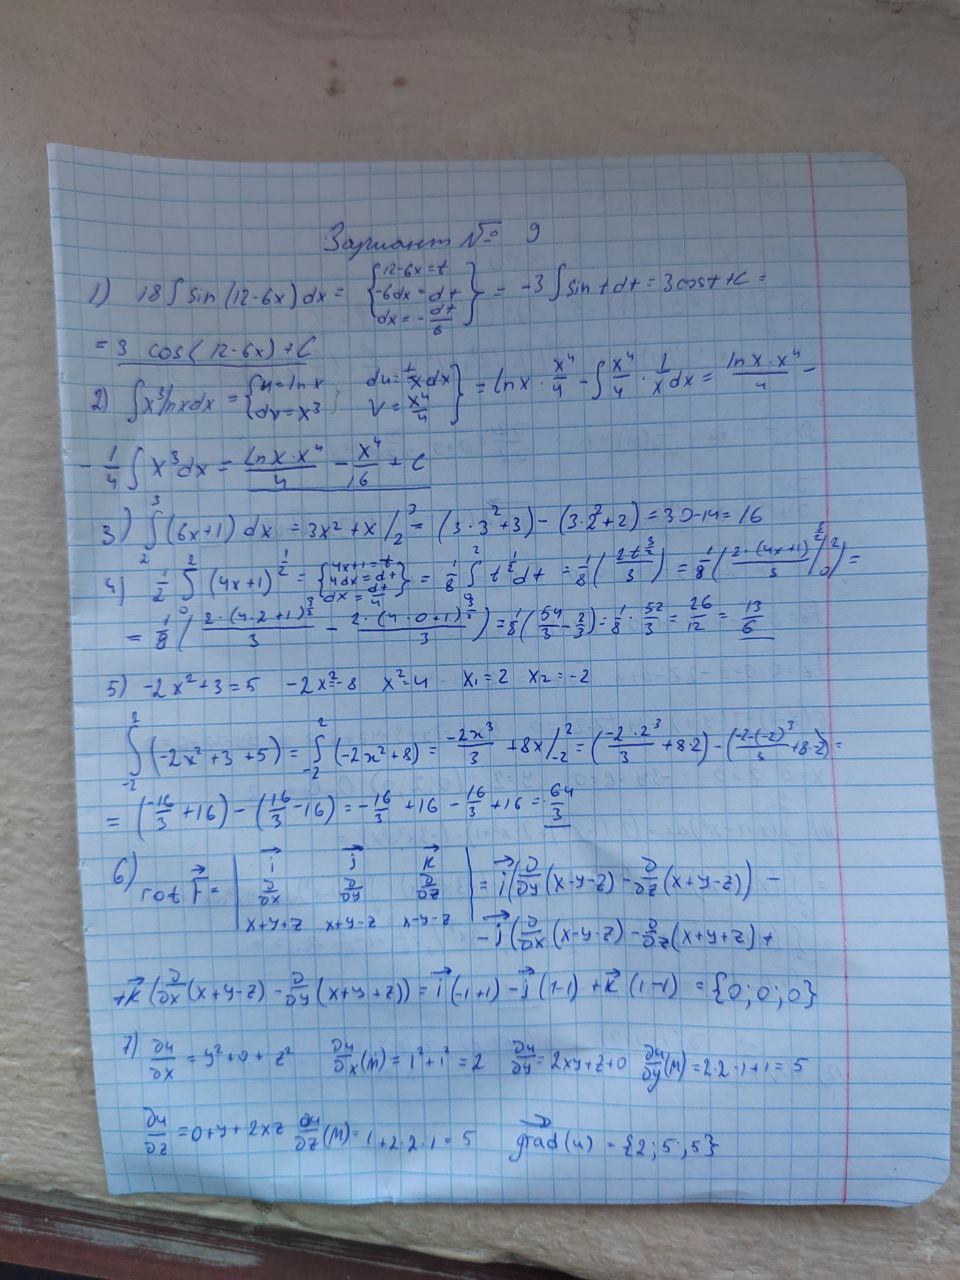 Вариант № 9
1) 18∫sin(12-6x)dx = {12-6x=t; -6dx=dt; dx=-dt/6} = -3∫sin t dt = 3cos t + C =
= 3 cos(12-6x)+C
2) ∫x³lnxdx = {u=lnx du=1/x dx; dv=x³ v=x⁴/4} = lnx · x⁴/4 - ∫x⁴/4 · 1/x dx = lnx·x⁴/4 -
- 1/4 ∫x³dx = lnx·x⁴/4 - x⁴/16 + C
3) ∫₂³(6x+1)dx = 3x²+x/₂³ = (3·3²+3)-(3·2²+2) = 30-14=16
4) 1/2 ∫₀²(4x+1)^(1/2) = {4x+1=t; 4dx=dt; dx=dt/4} = 1/8 ∫² t^(1/2)dt = 1/8(2t^(3/2)/3) = 1/8(2·(4x+1)^(3/2)/3 /₀²) =
= 1/8(2·(4·2+1)^(3/2)/3 - 2·(4·0+1)^(3/2)/3) = 1/8(54/3 - 2/3) = 1/8 · 52/3 = 26/12 = 13/6
5) -2x²+3=5 -2x²=-8 x²=4 x₁=2 x₂=-2
∫₋₂²(-2x²+3+5) = ∫₋₂²(-2x²+8) = -2x³/3 +8x/₋₂² = (-2·2³/3 +8·2) - (-2·(-2)³/3 +8·2) =
= (-16/3 +16) - (16/3 -16) = -16/3 +16 - 16/3 +16 = 64/3
6) rot F⃗ = | i⃗ j⃗ k⃗ ; ∂/∂x ∂/∂y ∂/∂z ; x+y+z x+y-z x-y-z | = i⃗(∂/∂y(x-y-z) - ∂/∂z(x+y-z)) -
- j⃗(∂/∂x(x-y-z) - ∂/∂z(x+y+z) +
+k⃗(∂/∂x(x+y-z) - ∂/∂y(x+y+z)) = i⃗(-1+1) - j⃗(1-1) + k⃗(1-1) = {0;0;0}
7) ∂u/∂x = y²+0+z² ∂u/∂x(M) = 1²+1² = 2 ∂u/∂y = 2xy+z+0 ∂u/∂y(M) = 2·2·1+1 = 5
∂u/∂z = 0+y+2xz ∂u/∂z(M) = 1+2·2·1 = 5 grad(u) = {2;5;5}